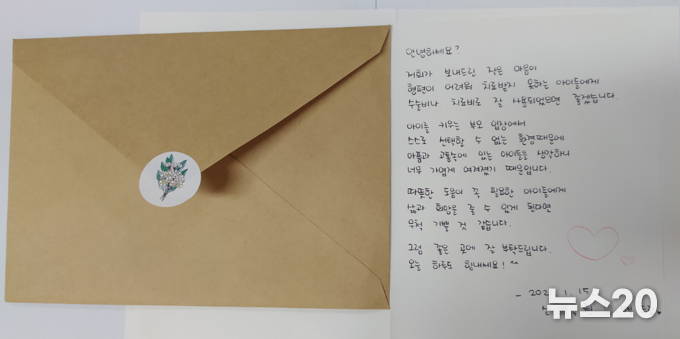 안녕하세요?
저희가 보내드린 작은 마음이
형편이 어려워 치료받지 못하는 아이들에게
수술비나 치료비로 잘 사용되었으면 좋겠습니다.
아이를 키우는 부모 입장에서
스스로 선택할 수 없는 환경때문에
아픔과 고통속에 있는 아이들을 생각하니
너무 가엽게 여겨졌기 때문입니다.
따뜻한 도움이 꼭 필요한 아이들에게
삶과 희망을 줄 수 있게 된다면
무척 기쁠 것 같습니다.
그럼 좋은 곳에 잘 부탁드립니다.
오늘 하루도 힘내세요! ^^
뉴스20